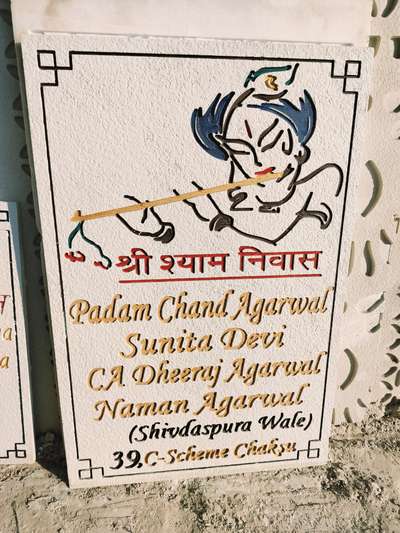 श्री श्याम निवास
Padam Chand Agarwal
Sunita Devi
CA Dheeraj Agarwal
Naman Agarwal
(Shivdaspura Wale)
39, C-Scheme Chaksu